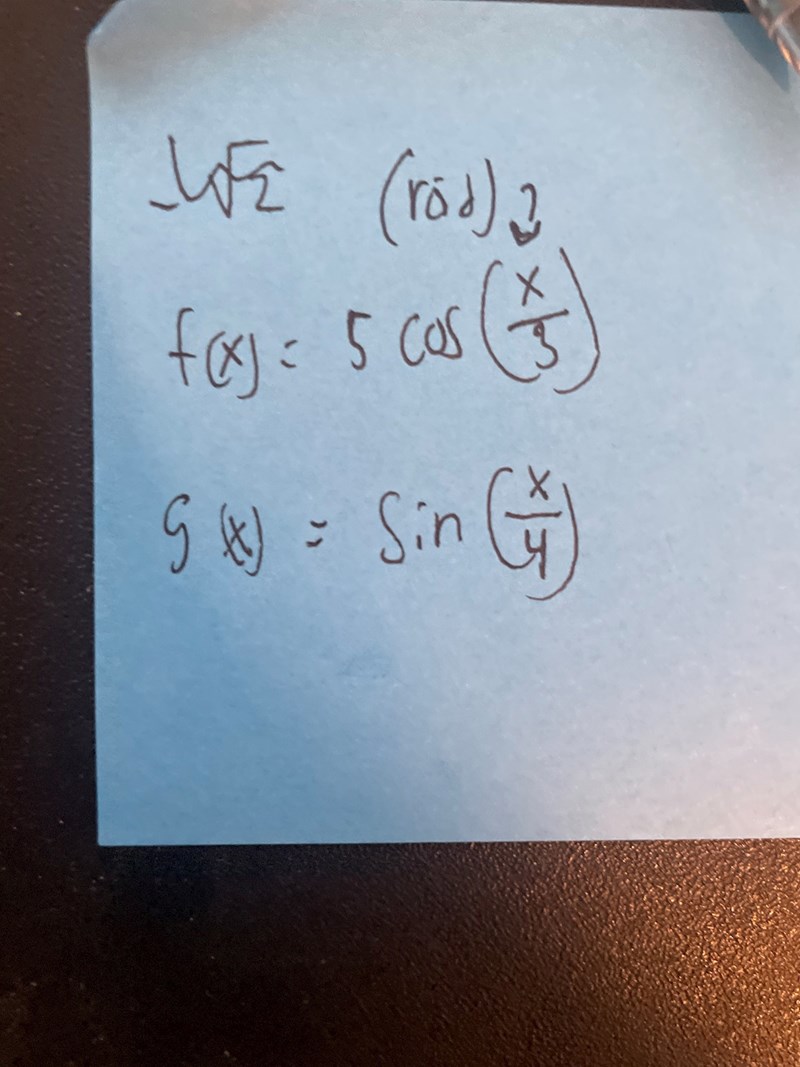 (rad)
f(x) = 5 cos(x/3)
g(x) = sin(x/4)